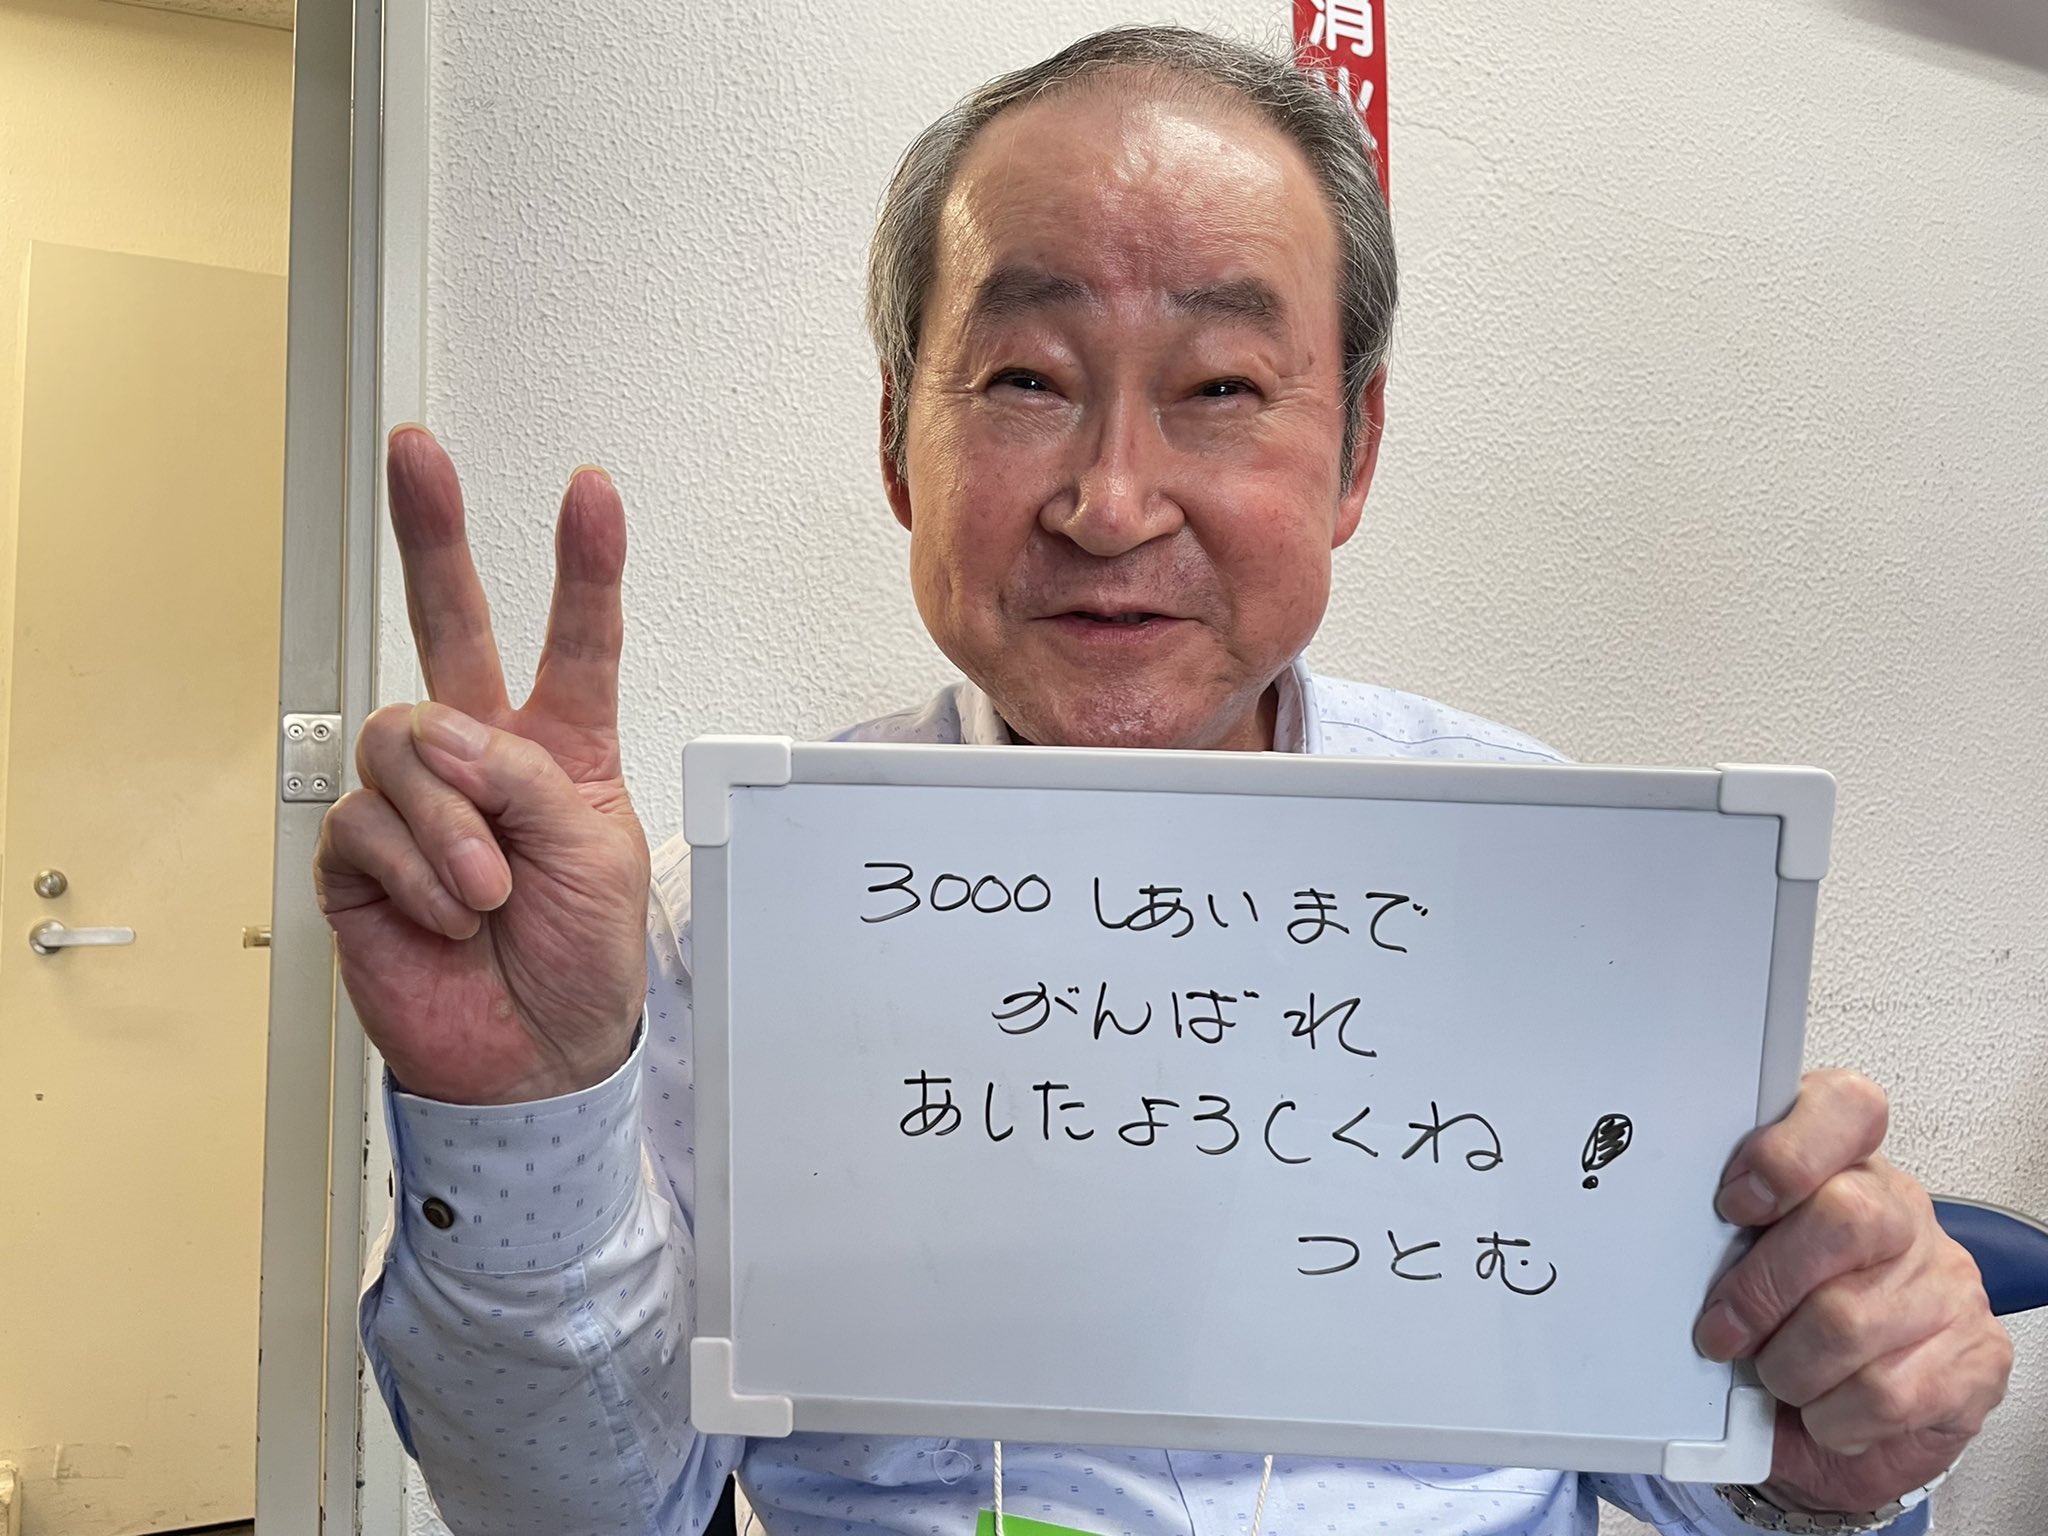 消火
3000 しあいまで
がんばれ
あしたよろしくね!
つとむ